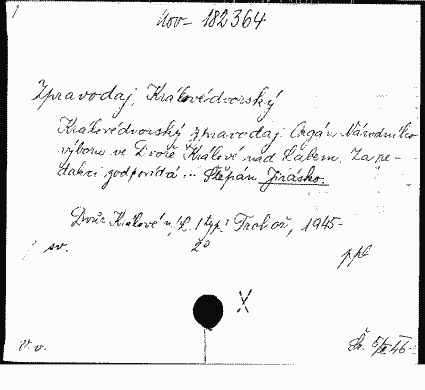 nov- 182364
Zpravodaj, Královédvorský
Královédvorský zpravodaj: Orgán Národního
výboru ve Dvoře Králové nad Labem. Za re-
dakci zodpovídá... Štěpán Jirásko.
Dvůr Králové n/L. 1945-
sv. 2°
ppl
V. v. 5/XI 46-